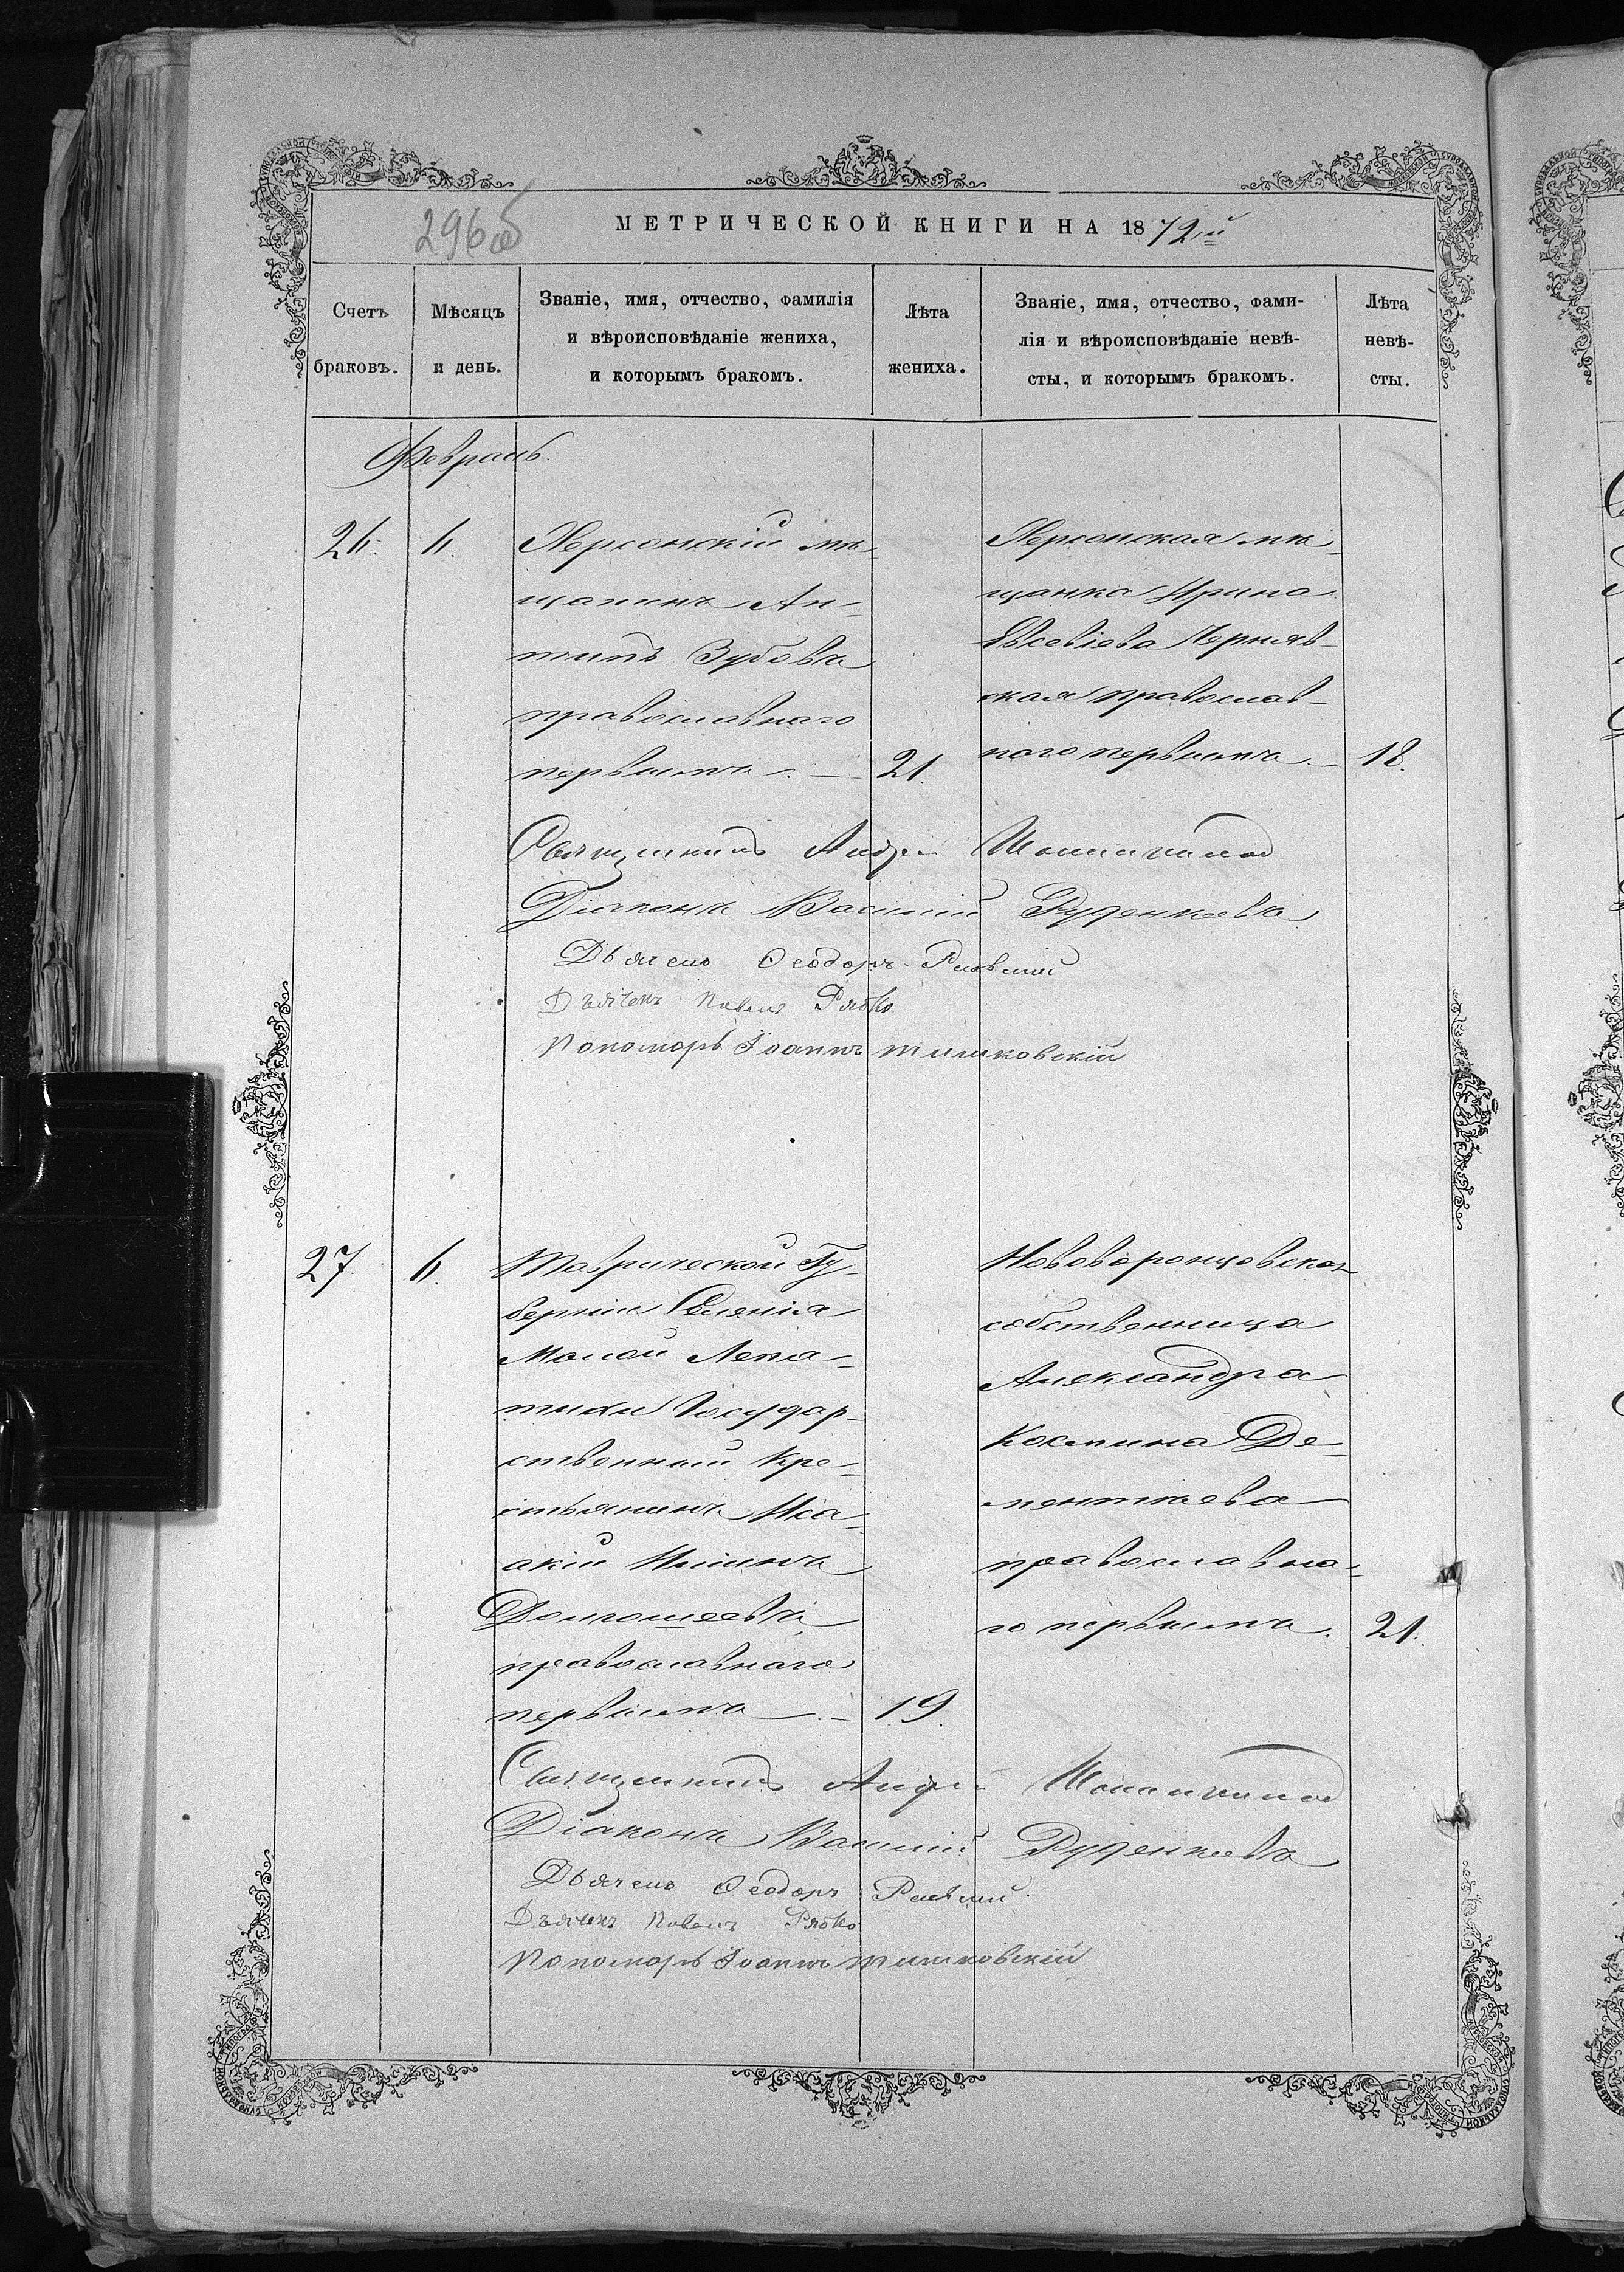 296об
МЕТРИЧЕСКОЙ КНИГИ НА 1872й
Счетъ браковъ.
Мѣсяцъ и день.
Званіе, имя, отчество, фамилія
и вѣроисповѣданіе жениха,
и которымъ бракомъ.
Лѣта жениха.
Званіе, имя, отчество, фами-
лія и вѣроисповѣданіе невѣ-
сты, и которымъ бракомъ.
Лѣта невѣ-
сты.
Февраль.
26. 6.
Херсонскій мѣ-
щанинъ Ан-
типъ Зубовъ
православнаго
первымъ. — 21.
Херсонская мѣ-
щанка Ирина
Евсевіева Черняв-
ская православ-
наго первымъ. — 18.
Священникъ Андрей
Діаконъ Василій Руденковъ
Дьячекъ Ѳеодоръ
Дьячекъ Павелъ Рябко
Пономарь Іоаннъ Тишковскій
27. 6.
Таврической Гу-
берніи Селенія
Малой Лепа-
тихи Государ-
ственный Кре-
стьянинъ Иса-
акій Ильинъ
Долгошеевъ
православнаго
первымъ — 19.
Нововоронцовская
собственница
Александра
Космина Де-
ментіева
православна-
го первымъ. 21.
Священникъ Андрей
Діаконъ Василій Руденковъ
Дьячекъ Ѳеодоръ
Дьячекъ Павелъ Рябко
Пономарь Іоаннъ Тишковскій